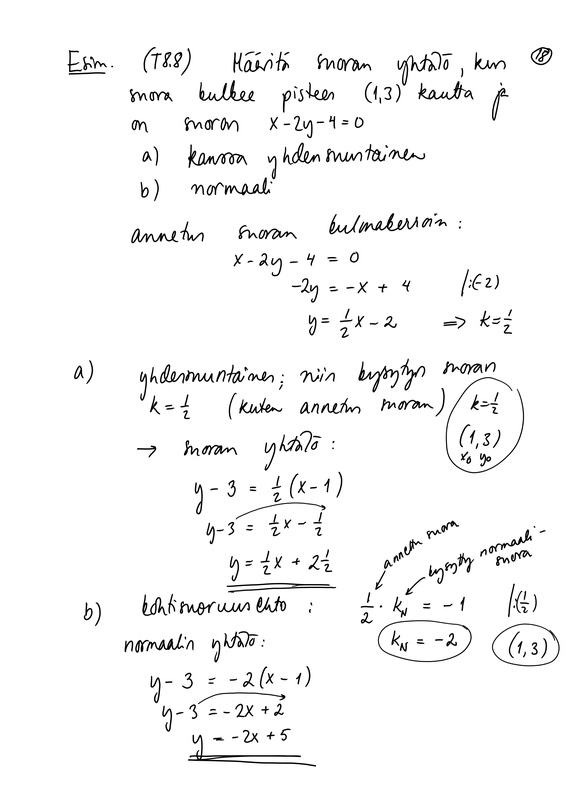 Esim. (T8.8) Määritä suoran yhtälö, kun 18
suora kulkee pisteen (1,3) kautta ja
on suoran x-2y-4=0
a) kanssa yhdensuuntainen
b) normaali
annetun suoran kulmakerroin:
x-2y-4 = 0
-2y = -x + 4 |:(-2)
y = 1/2 x - 2 => k=1/2
a) yhdensuuntainen; niin kysytyn suoran
k = 1/2 (kuten annetun suoran) k=1/2
→ suoran yhtälö: (1,3)
x₀ y₀
y - 3 = 1/2 (x-1)
y-3 = 1/2 x - 1/2
y = 1/2 x + 2 1/2
annettu suora
kysytty normaali-
suora
b) kohtisuoruusehto: 1/2 · k_N = -1 |:(1/2)
normaalin yhtälö: k_N = -2 (1,3)
y - 3 = -2(x-1)
y-3 = -2x+2
y = -2x+5